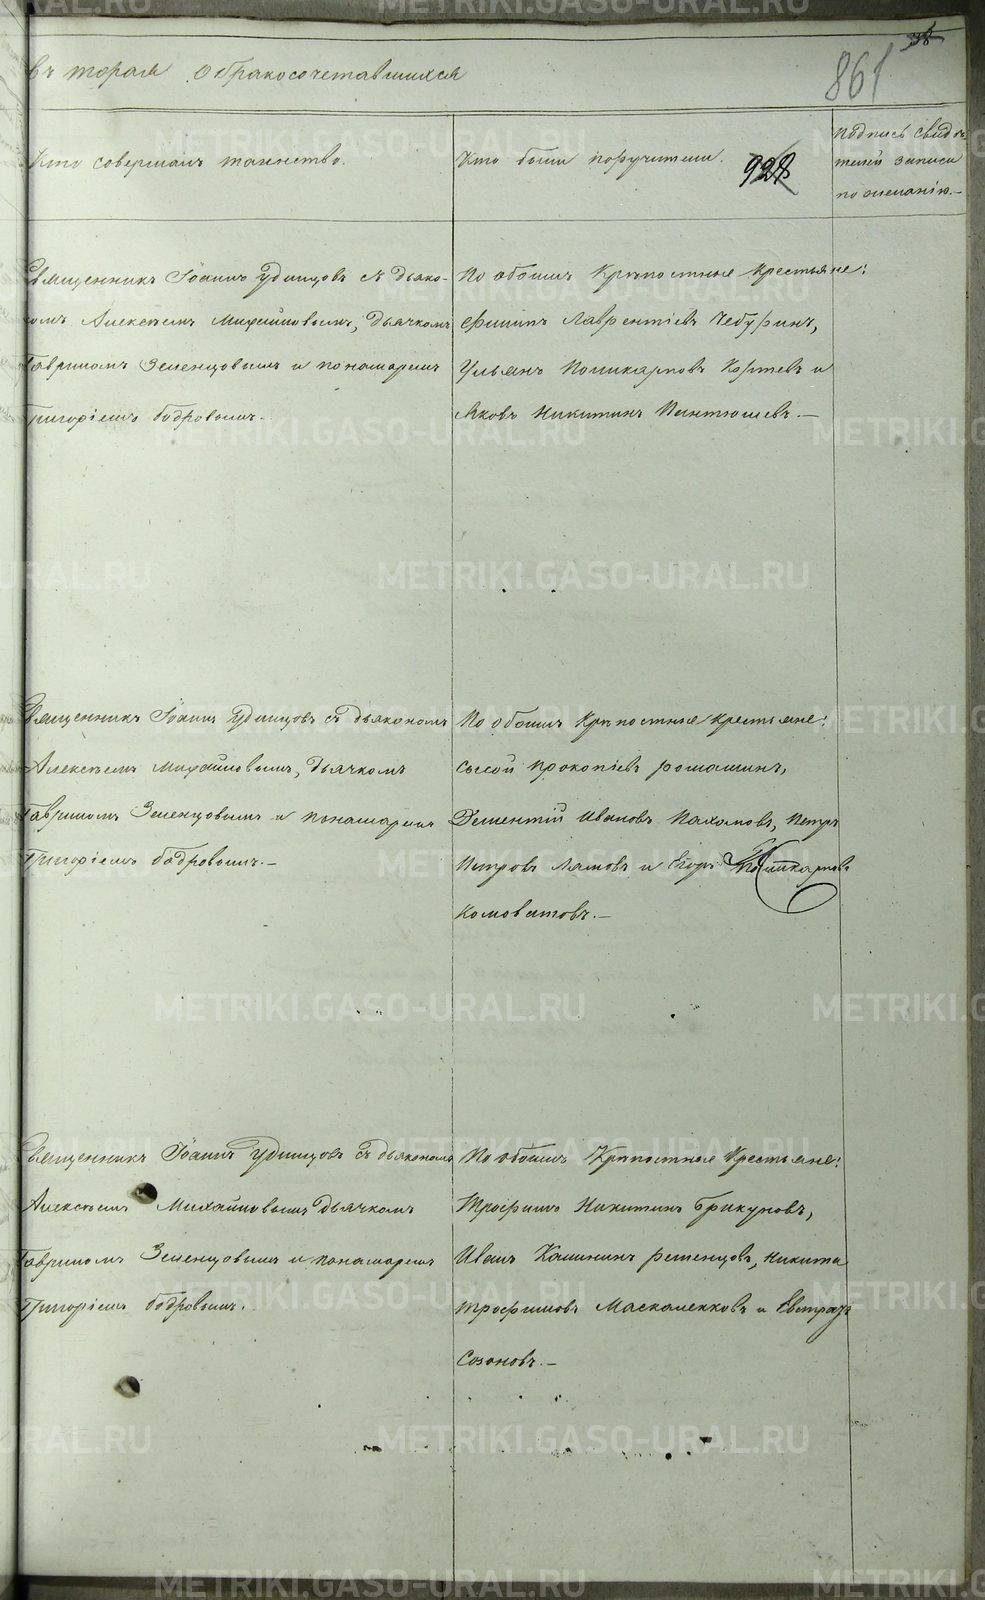 338
861
въ торая о бракосочетавшихся
Кто совершалъ таинство.
Кто были поручители.
928
Подпись свидѣ
телей записи
по желанію.—
Священникъ Іоаннъ Удинцовъ съ дьяко-
номъ Алексѣемъ Михайловымъ, дьячкомъ
Гавриломъ Зеленцовымъ и понамаремъ
Григоріемъ Бодровымъ.
По обоимъ Крѣпостные крестьяне:
Филипъ Лаврентіевъ Чебуринъ,
Ульянъ Поликарповъ Кортевъ и
Яковъ Никитинъ Пантюшевъ.—
Священникъ Іоаннъ Удинцовъ съ дьякономъ
Алексѣемъ Михайловымъ, дьячкомъ
Гавриломъ Зеленцовымъ и понамаремъ
Григоріемъ Бодровымъ.—
По обоимъ Крѣпостные крестьяне:
Сысой Прокопіевъ Ромашинъ,
Дементій Ивановъ Пахомовъ, Петръ
Петровъ Ламовъ и Егоръ Поликарповъ
Коловатовъ.—
Священникъ Іоаннъ Удинцовъ съ дьякономъ
Алексѣемъ Михайловымъ дьячкомъ
Гавриломъ Зеленцовымъ и понамаремъ
Григоріемъ Бодровымъ.
По обоимъ Крѣпостные крестьяне:
Трофимъ Никитинъ Брикуновъ,
Иванъ Калининъ Решенцовъ, Никита
Трофимовъ Маскаленковъ и Евстрат
Созоновъ.—
METRIKI.GASO-URAL.RU